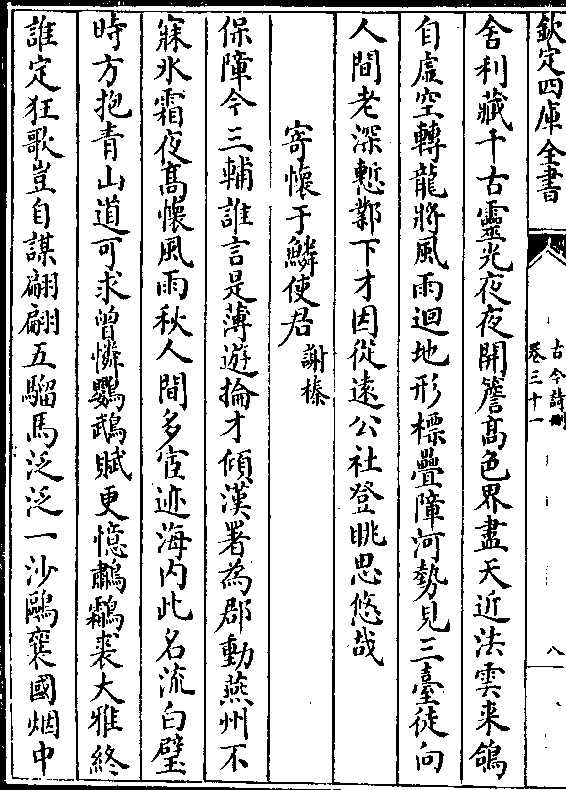 欽定四庫全書
古今詩刪
卷三十一
八
舍利藏千古靈光夜夜開簷高色界盡天近法雲来鴿
自虛空轉龍將風雨迴地形標疊障河勢見三臺徒向
人間老深慙鄴下才因從遠公社登眺思悠哉
寄懷于鱗使君
謝榛
保障今三輔誰言是薄遊掄才傾漢署為郡動燕州不
寐氷霜夜髙懷風雨秋人間多宦迹海内此名流白璧
時方抱青山道可求曾憐鸚鵡賦更憶鷫鸘裘大雅終
誰定狂歌豈自謀翩翩五騮馬泛泛一沙鷗襄國烟中